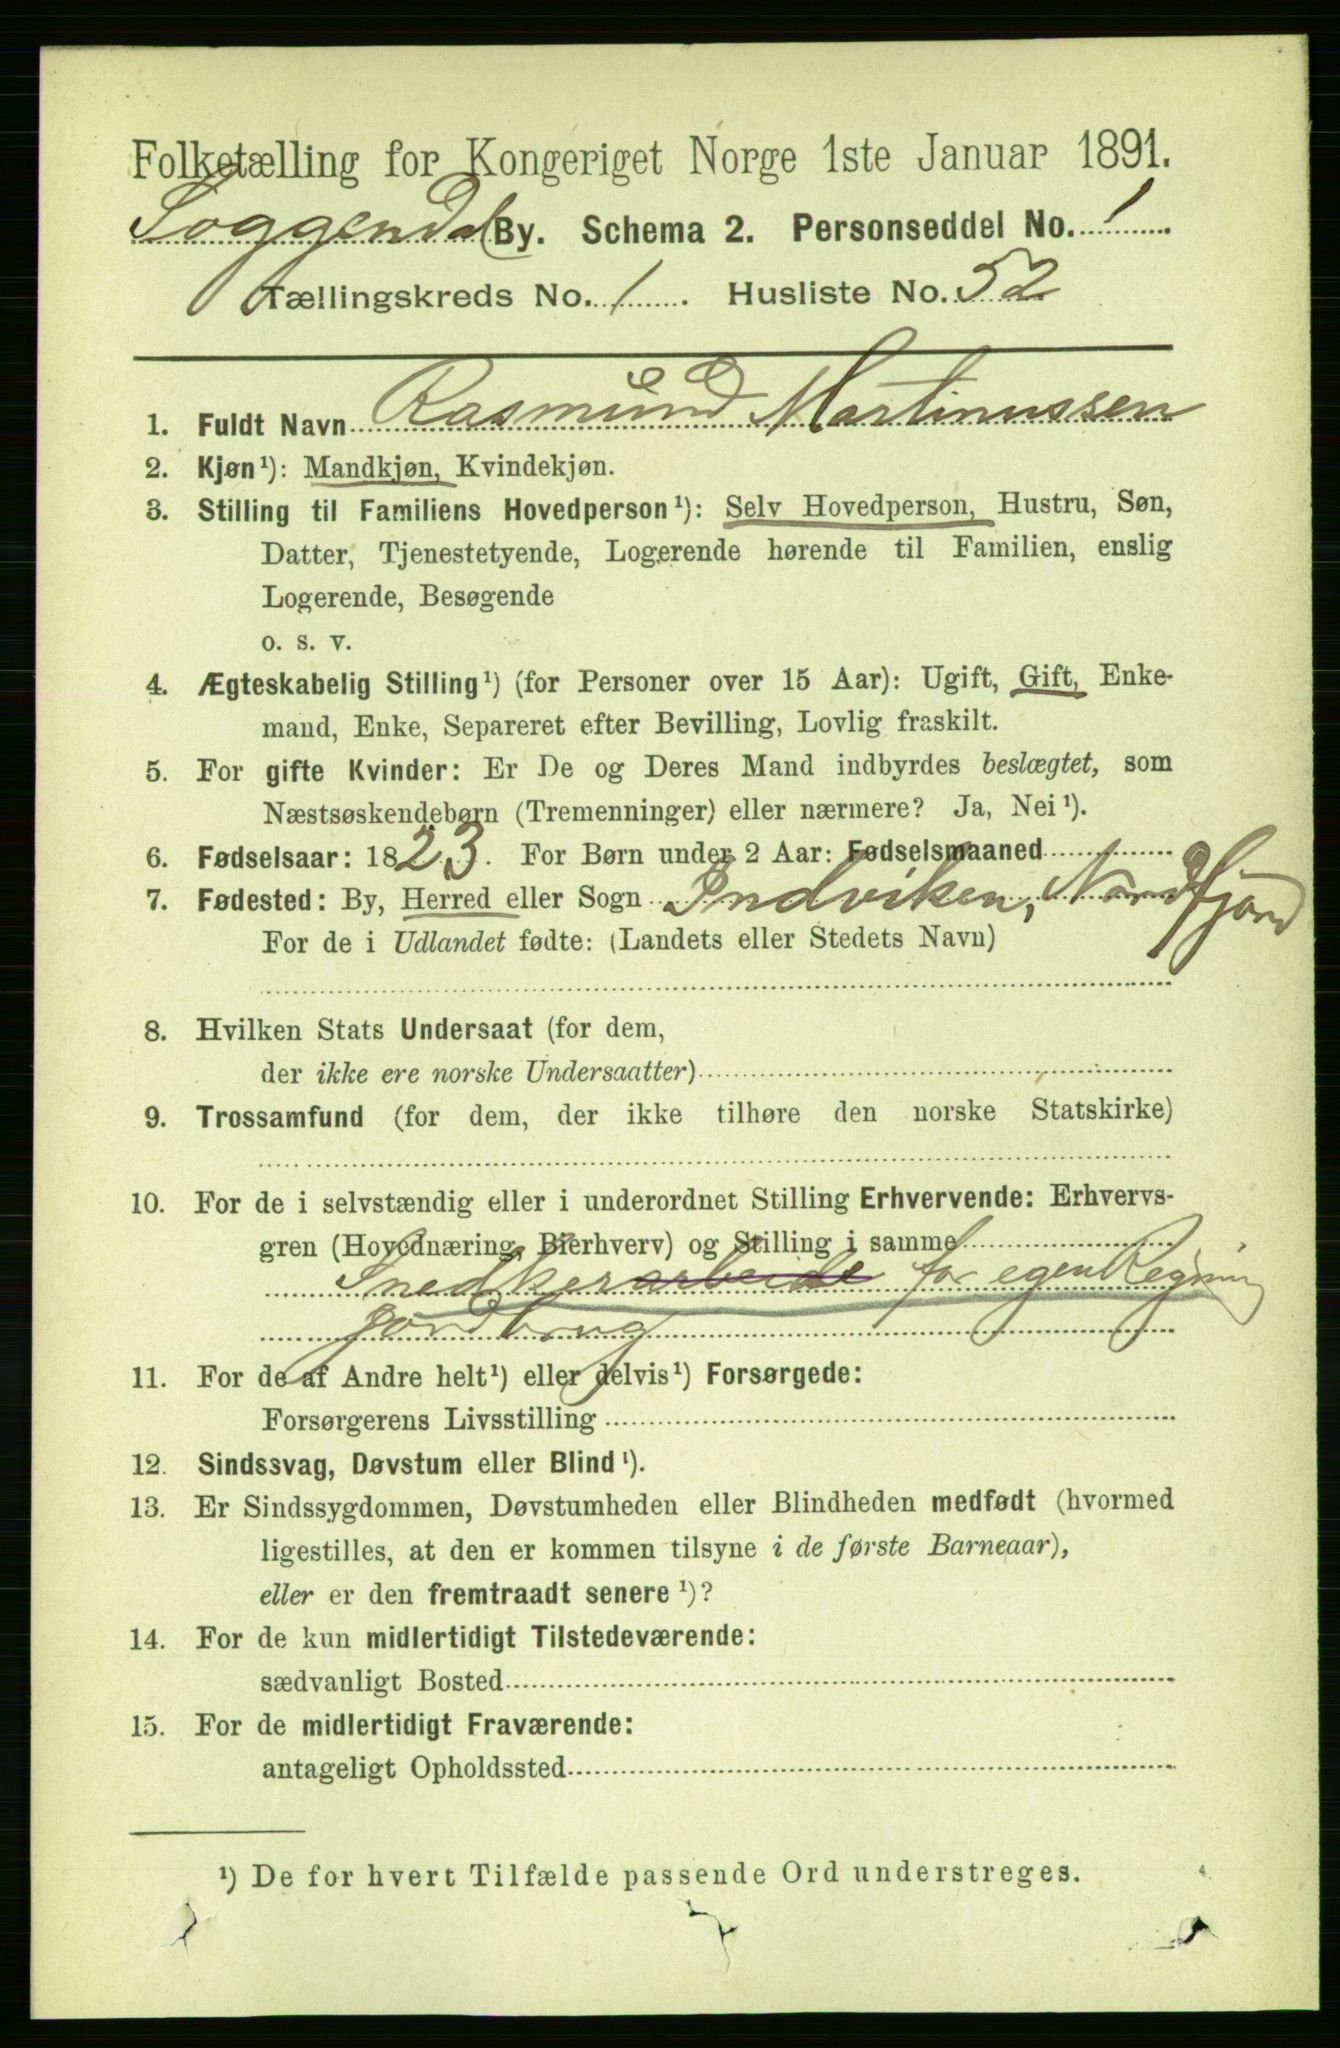 Folketælling for Kongeriget Norge 1ste Januar 1891.
Soggendal By. Schema 2. Personseddel No. 1
Tællingskreds No. 1. Husliste No. 52
1. Fuldt Navn Rasmund Martinussen
2. Kjøn¹): Mandkjøn, Kvindekjøn.
3. Stilling til Familiens Hovedperson¹): Selv Hovedperson, Hustru, Søn,
Datter, Tjenestetyende, Logerende hørende til Familien, enslig
Logerende, Besøgende
o. s. v.
4. Ægteskabelig Stilling¹) (for Personer over 15 Aar): Ugift, Gift, Enke-
mand, Enke, Separeret efter Bevilling, Lovlig fraskilt.
5. For gifte Kvinder: Er De og Deres Mand indbyrdes beslægtet, som
Næstsøskendebørn (Tremenninger) eller nærmere? Ja, Nei¹).
6. Fødselsaar: 1823. For Børn under 2 Aar: Fødselsmaaned
7. Fødested: By, Herred eller Sogn Indviken, Nordfjord
For de i Udlandet fødte: (Landets eller Stedets Navn)
8. Hvilken Stats Undersaat (for dem,
der ikke ere norske Undersaatter)
9. Trossamfund (for dem, der ikke tilhøre den norske Statskirke)
10. For de i selvstændig eller i underordnet Stilling Erhvervende: Erhvervs-
gren (Hovednæring, Bierhverv) og Stilling i samme
Snedkerarbeide for egen Regning
Jordbrug
11. For de af Andre helt¹) eller delvis¹) Forsørgede:
Forsørgerens Livsstilling
12. Sindssvag, Døvstum eller Blind¹).
13. Er Sindssygdommen, Døvstumheden eller Blindheden medfødt (hvormed
ligestilles, at den er kommen tilsyne i de første Barneaar),
eller er den fremtraadt senere¹)?
14. For de kun midlertidigt Tilstedeværende:
sædvanligt Bosted
15. For de midlertidigt Fraværende:
antageligt Opholdssted
¹) De for hvert Tilfælde passende Ord understreges.